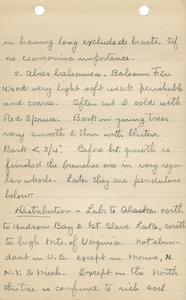 in having long excluded bracts. Of
no economic importance.
2. Abies balsamea. Balsam Fir
Wood very light soft weak perishable
and coarse. Often cut & sold with
Red Spruce. Bark on young trees
very smooth & thin with blisters.
Bark < 3/4". Before ht. growth is
finished the branches are in very regu-
lar whorls. Later they are pendulous
below.
Distribution - Lab. to Alaska north
to Hudson Bay & Gt. Slave Lake, south
to high Mts. of Virginia. Not abun-
dant in U.S. except in Maine, N.
N.Y. & Mich. Except in the North
this tree is confined to rich soil